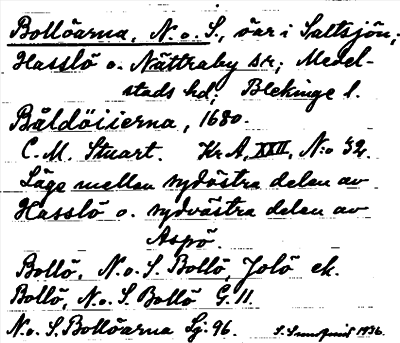 Bollöarna, N. o. S., öar i Saltsjön,
Hasslö o. Nättraby sr; Medel-
stads hd, Blekinge l.
Båldöiierna, 1680.
C. M. Stuart. Kr A, XXII, N:o 32.
Läge mellan sydöstra delen av
Hasslö o. sydvästra delen av
Aspö.
Bollö, N. o. S. Bollö, Jolö ek.
Bollö, N. o. S. Bollö G. 11.
N. o. S. Bollöarna Lj. 96. S. Sundquist 1936.